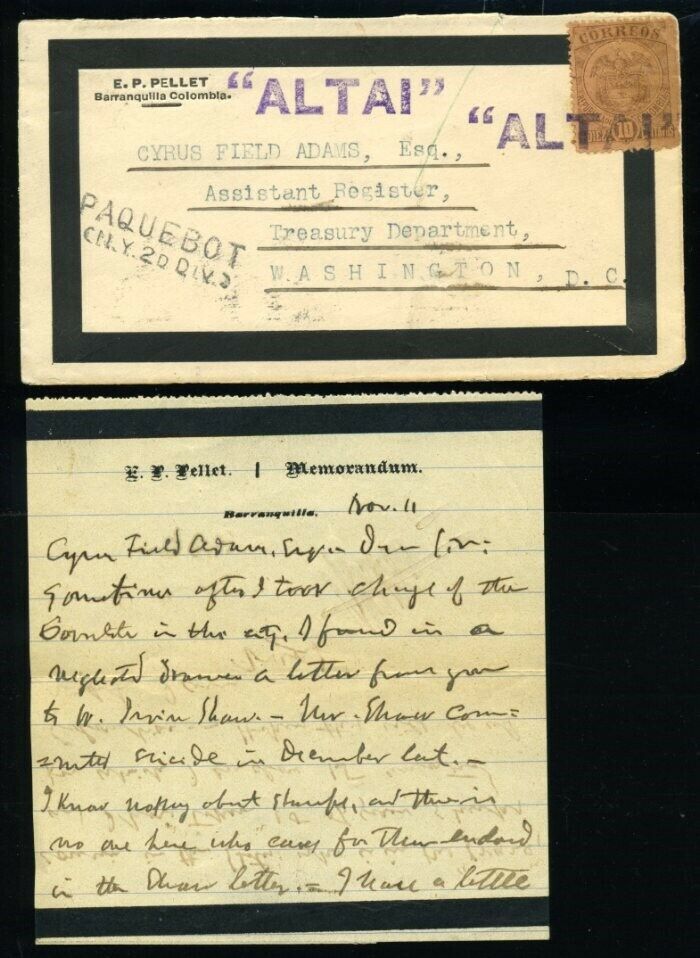 E. P. PELLET
Barranquilla Colombia.
"ALTAI"
"ALTAI"
CORREOS
DIEZ 10
CYRUS FIELD ADAMS, Esq.,
Assistant Register,
Treasury Department,
WASHINGTON, D. C.
PAQUEBOT
(N.Y. 2D DIV.)
E. P. Pellet. | Memorandum.
Barranquilla. Nov. 11
Cyrus Field Adams, Esq. - Dear Sir:
Sometime after I took charge of the
Consulate in this city, I found in a
neglected drawer a letter from you
to W. Irvin Shaw. - Mr. Shaw com=
=mitted suicide in December last. -
I know nothing about stamps, and there is
no one here who cares for them enclosed
in the Shaw letter. - I have a little